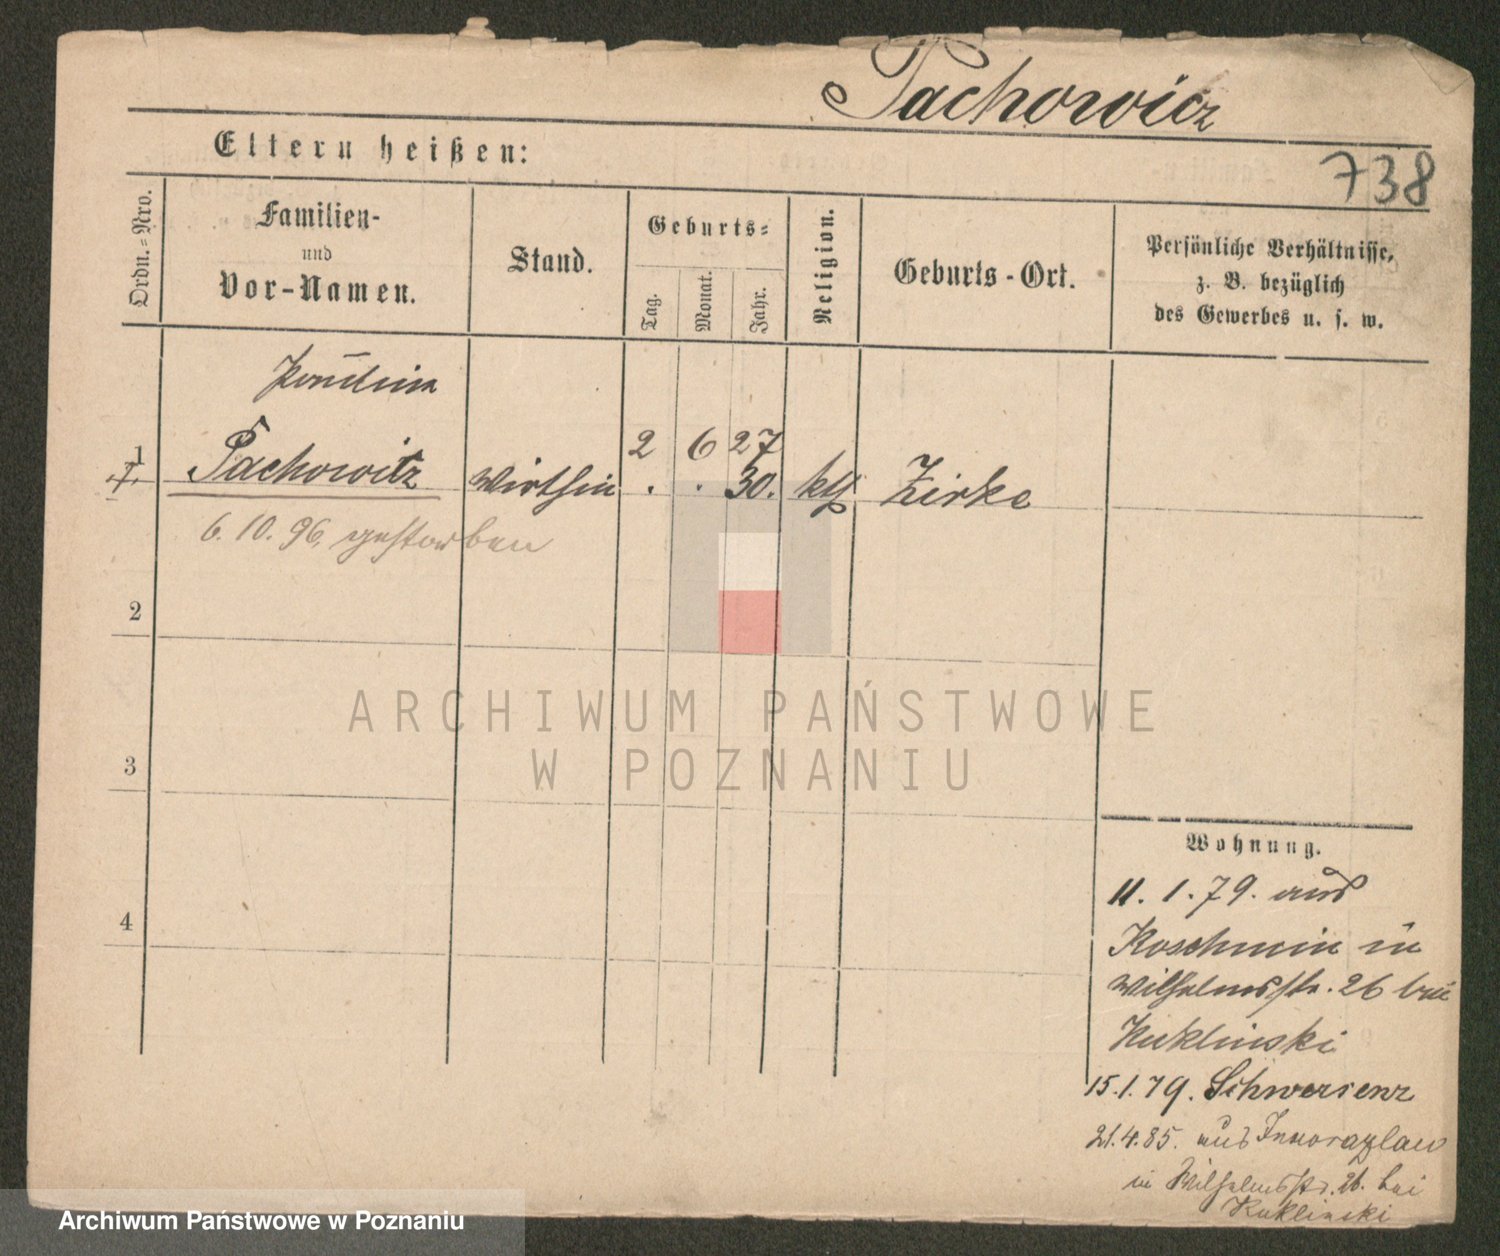 Tachowicz
Eltern heißen:
738
Ordn.=Nro.
Familien-
und
Vor-Namen.
Stand.
Geburts=
Tag.
Monat.
Jahr.
Religion.
Geburts-Ort.
Persönliche Verhältnisse,
z. B. bezüglich
des Gewerbes u. s. w.
1
Tachowitz
Wirthin
2 6 27
. . 30.
kth
Zirke
6.10.96. gestorben
2
3
4
ARCHIWUM PAŃSTWOWE
W POZNANIU
Wohnung.
11.1.79. aus
Koschmin in
Wilhelmsstr. 26 bei
Kuklinski
15.1.79. Schwersenz
21.4.85. aus Inowrazlaw
in Wilhelmsstr. 26. bei
Kuklinski
Archiwum Państwowe w Poznaniu